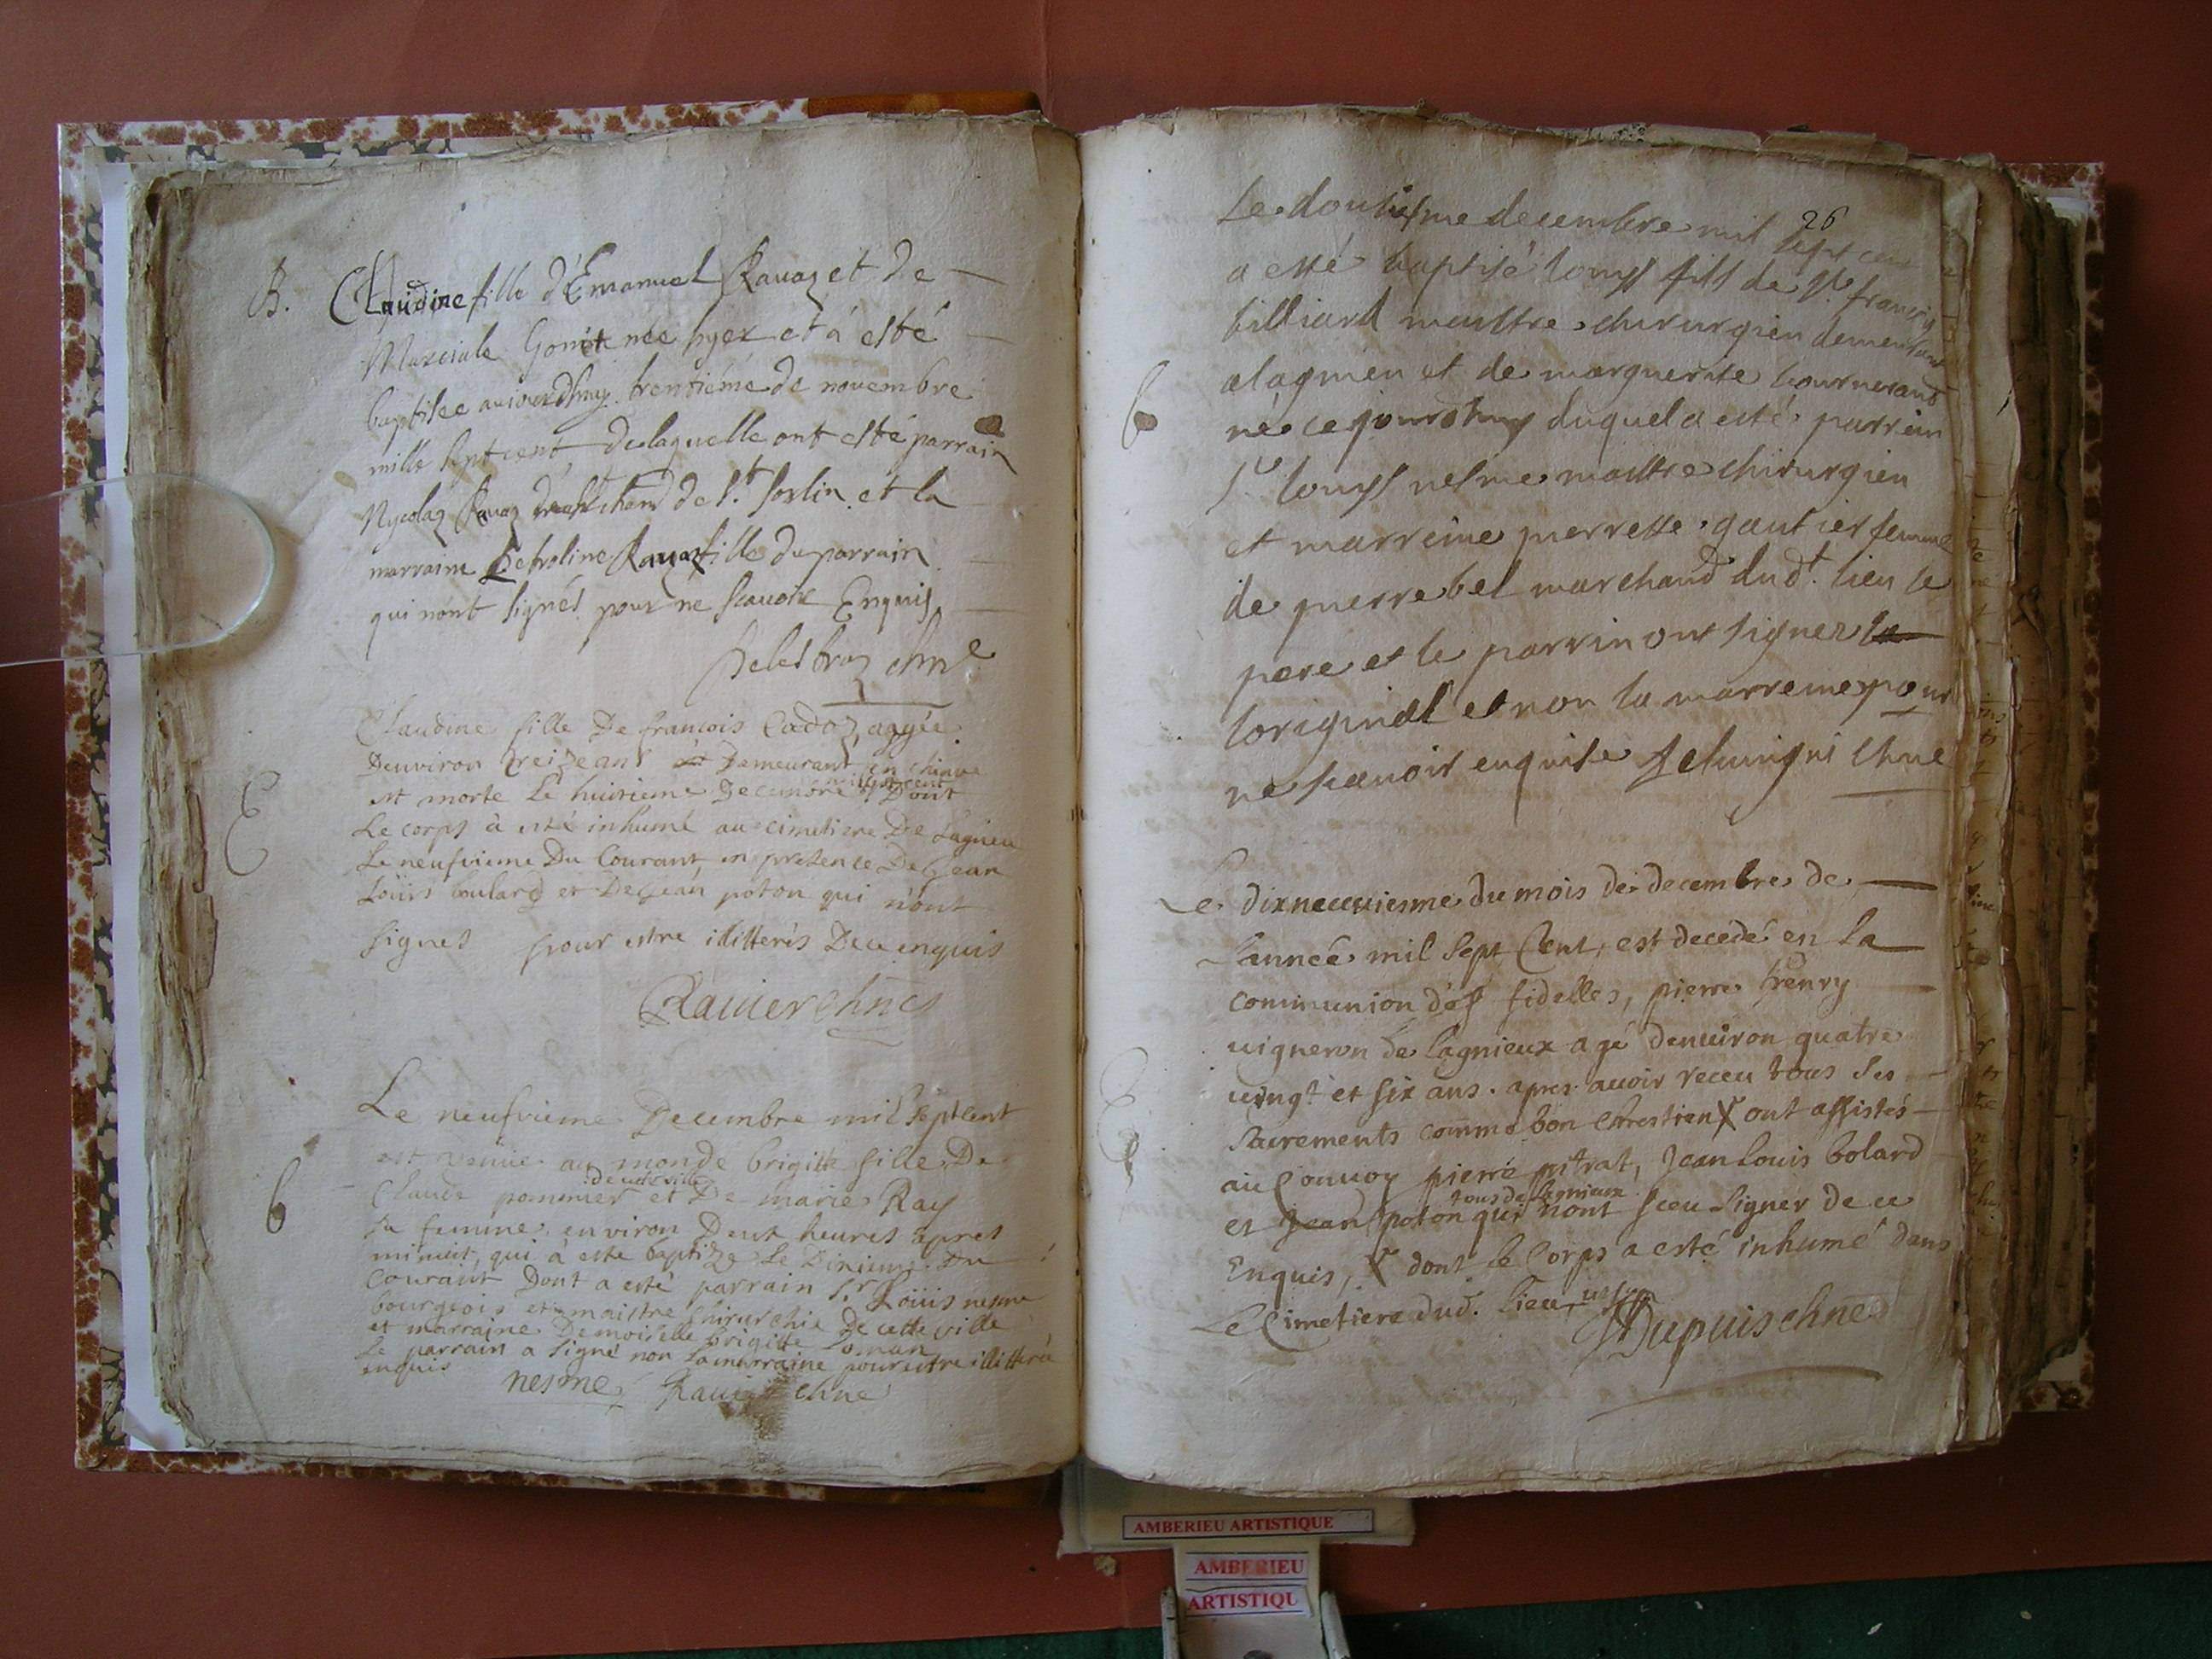 B. Claudine fille d'Emanuel Ravaz et de
Marciale Gonit née hyer et à esté
baptisee auiourdhuy trentiéme de novembre
mille sept cent de laquelle ont esté parrain
Nycolaz Ravaz marchand de st. Sorlin et la
marraine Ravaz fille du parrain
qui n'ont signés pour ne scauoir Enquis
Delestraz chne
Claudine fille De francois Cadoz aagée
Denviron treize ans Demeurant en
E
est morte Le huitieme Decembre mil sept cent Dont
Le corps à esté inhumé au cimetiere De Lagnieu
Le neufvieme Du Courant en presence De Jean
Loüis boulard et De Jean poton qui n'ont
signes pour estre illitterés De ce enquis
Ravier chne
Le neufvieme Decembre mil sept cent
est venüe au monde brigitte fille De
b
de cette ville
Claude pommier et De marie Ray
sa femme environ Deux heures apres
minuit, qui à este baptize Le Dixieme Du
Courant Dont a esté parrain Sr. Loüis nesme
bourgeois et maistre chirurchie De cette ville
et marraine Demoiselle brigitte
Le parrain a signé non La marraine pour estre illitterée
enquis
nesme Ravier chne
26
Le douziesme decembre mil sept cen
a esté baptisé Louys fils de Sr. françois
billiard maistre chirurgien demeurant
a lagnieu et de marguerite tournerand
b
né ce jourdhuy duquel a esté parrein
Sr Louys nesme maistre chirurgien
et marreine pierrette gautier femme
de pierre bel marchand dud. lieu le
pere et le parrin ont signer
loriginal et non la marreine pour
ne scavoir enquise chne
Le dixneuviesme du mois de decembre de
L'année mil sept Cent, est decédé en la
communion des fidelles, pierre henry
vigneron de lagnieux agé denuiron quatre
E
vingt et six ans. apres auoir receu tous ses
sacrements comme bon chrestien X ont assistés
au Convoy pierre pitrat, Jean Louis bolard
tous de lagnieux
et Jean poton qui n'ont sceu signer de ce
Enquis, X dont le Corps a esté inhumé dans
Le Cimetiere dud. lieu
Dupuis chne
AMBERIEU ARTISTIQUE
AMBERIEU
ARTISTIQU